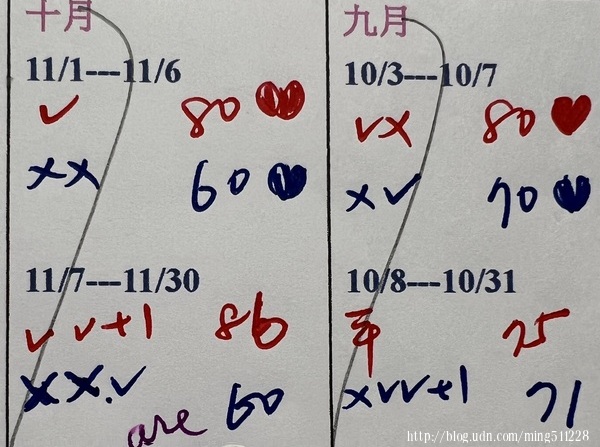 十月
11/1---11/6
✓ 80
xx 60
11/7---11/30
✓ ✓+1 86
xx.✓ 60
are
九月
10/3---10/7
✓x 80
x✓ 70
10/8---10/31
平 75
x✓✓+1 71
http://blog.udn.com/ming511228